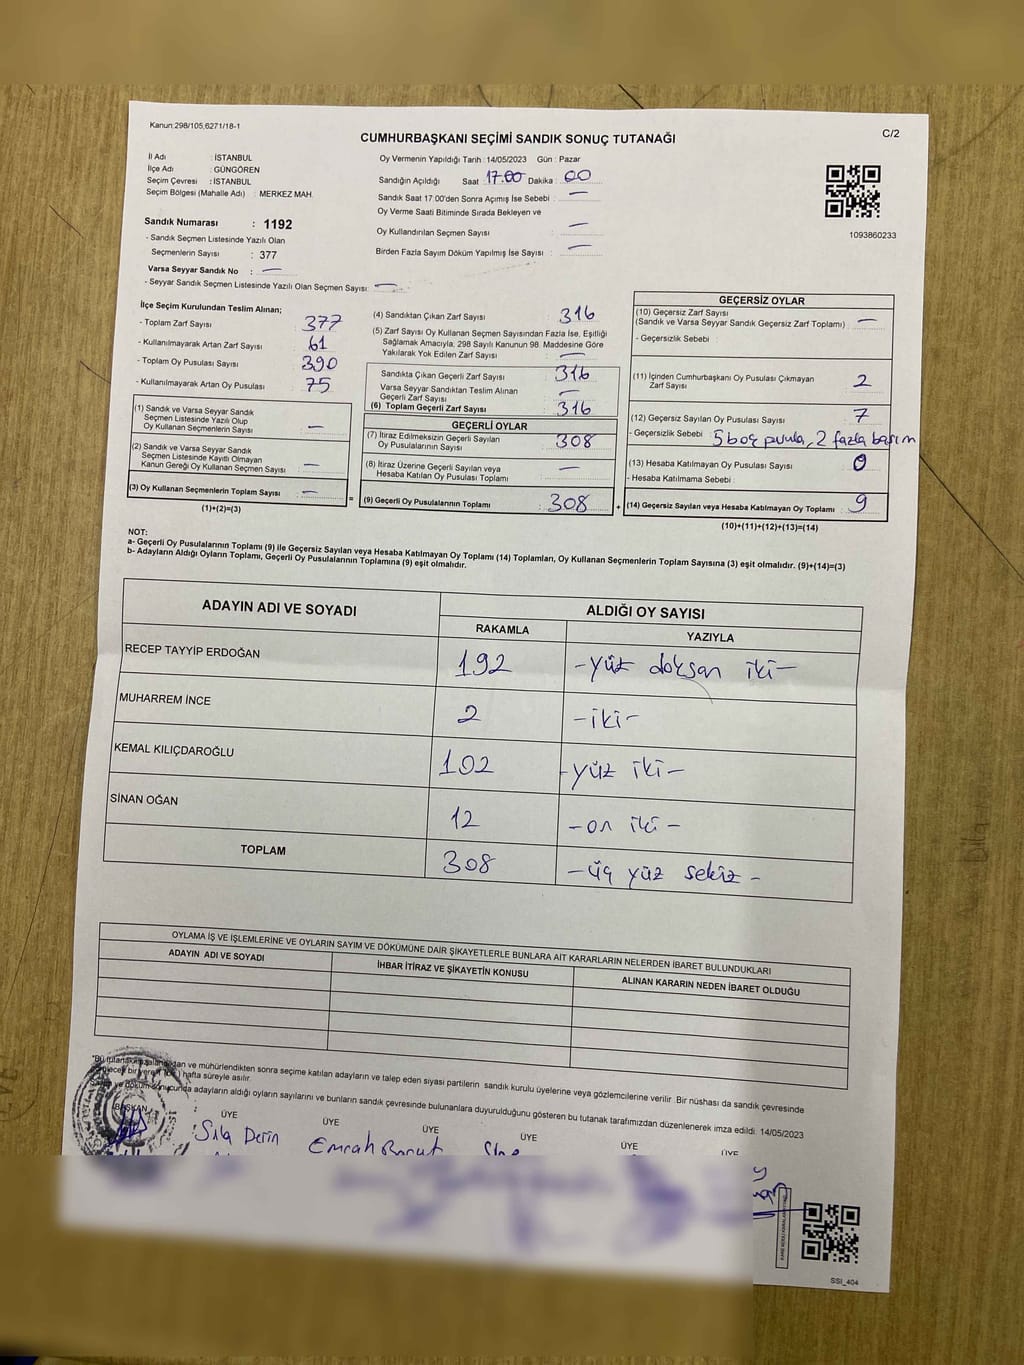 Kanun:298/105,6271/18-1
C/2
CUMHURBAŞKANI SEÇİMİ SANDIK SONUÇ TUTANAĞI
İl Adı : İSTANBUL
İlçe Adı : GÜNGÖREN
Seçim Çevresi : İSTANBUL
Seçim Bölgesi (Mahalle Adı) : MERKEZ MAH.
Sandık Numarası : 1192
- Sandık Seçmen Listesinde Yazılı Olan
Seçmenlerin Sayısı : 377
Varsa Seyyar Sandık No : —
- Seyyar Sandık Seçmen Listesinde Yazılı Olan Seçmen Sayısı: —
Oy Vermenin Yapıldığı Tarih : 14/05/2023 Gün : Pazar
Sandığın Açıldığı Saat 17.00 Dakika : 00
Sandık Saat 17.00'den Sonra Açımış İse Sebebi : —
Oy Verme Saati Bitiminde Sırada Bekleyen ve
Oy Kullandırılan Seçmen Sayısı : —
Birden Fazla Sayım Döküm Yapılmış İse Sayısı : —
1093860233
İlçe Seçim Kurulundan Teslim Alınan;
- Toplam Zarf Sayısı : 377
- Kullanılmayarak Artan Zarf Sayısı : 61
- Toplam Oy Pusulası Sayısı : 390
- Kullanılmayarak Artan Oy Pusulası : 75
(1) Sandık ve Varsa Seyyar Sandık
Seçmen Listesinde Yazılı Olup
Oy Kullanan Seçmenlerin Sayısı : —
(2) Sandık ve Varsa Seyyar Sandık
Seçmen Listesinde Kayıtlı Olmayan
Kanun Gereği Oy Kullanan Seçmen Sayısı : —
(3) Oy Kullanan Seçmenlerin Toplam Sayısı : —
(1)+(2)=(3)
(4) Sandıktan Çıkan Zarf Sayısı : 316
(5) Zarf Sayısı Oy Kullanan Seçmen Sayısından Fazla İse, Eşitliği
Sağlamak Amacıyla, 298 Sayılı Kanunun 98. Maddesine Göre
Yakılarak Yok Edilen Zarf Sayısı : —
Sandıkta Çıkan Geçerli Zarf Sayısı : 316
Varsa Seyyar Sandıktan Teslim Alınan
Geçerli Zarf Sayısı : —
(6) Toplam Geçerli Zarf Sayısı : 316
GEÇERLİ OYLAR
(7) İtiraz Edilmeksizin Geçerli Sayılan
Oy Pusulalarının Sayısı : 308
(8) İtiraz Üzerine Geçerli Sayılan veya
Hesaba Katılan Oy Pusulaları Toplamı : —
= (9) Geçerli Oy Pusulalarının Toplamı : 308
GEÇERSİZ OYLAR
(10) Geçersiz Zarf Sayısı
(Sandık ve Varsa Seyyar Sandık Geçersiz Zarf Toplamı) : —
- Geçersizlik Sebebi :
(11) İçinden Cumhurbaşkanı Oy Pusulası Çıkmayan
Zarf Sayısı : 2
(12) Geçersiz Sayılan Oy Pusulası Sayısı : 7
- Geçersizlik Sebebi : 5 boş pusula, 2 fazla basım
(13) Hesaba Katılmayan Oy Pusulası Sayısı : 0
- Hesaba Katılmama Sebebi :
+ (14) Geçersiz Sayılan veya Hesaba Katılmayan Oy Toplamı : 9
(10)+(11)+(12)+(13)=(14)
NOT:
a- Geçerli Oy Pusulalarının Toplamı (9) ile Geçersiz Sayılan veya Hesaba Katılmayan Oy Toplamı (14) Toplamları, Oy Kullanan Seçmenlerin Toplam Sayısına (3) eşit olmalıdır. (9)+(14)=(3)
b- Adayların Aldığı Oyların Toplamı, Geçerli Oy Pusulalarının Toplamına (9) eşit olmalıdır.
ADAYIN ADI VE SOYADI
ALDIĞI OY SAYISI
RAKAMLA YAZIYLA
RECEP TAYYİP ERDOĞAN 192 -yüz doksan iki-
MUHARREM İNCE 2 -iki-
KEMAL KILIÇDAROĞLU 102 -yüz iki-
SİNAN OĞAN 12 -on iki-
TOPLAM 308 -üç yüz sekiz-
OYLAMA İŞ VE İŞLEMLERİNE VE OYLARIN SAYIM VE DÖKÜMÜNE DAİR ŞİKAYETLERLE BUNLARA AİT KARARLARIN NELERDEN İBARET BULUNDUKLARI
ADAYIN ADI VE SOYADI İHBAR İTİRAZ VE ŞİKAYETİN KONUSU ALINAN KARARIN NEDEN İBARET OLDUĞU
ve mühürlendikten sonra seçime katılan adayların ve talep eden siyasi partilerin sandık kurulu üyelerine veya gözlemcilerine verilir. Bir nüshası da sandık çevresinde
hafta süreyle asılır.
adayların aldığı oyların sayılarını ve bunların sandık çevresinde bulunanlara duyurulduğunu gösteren bu tutanak tarafımızdan düzenlenerek imza edildi. 14/05/2023
BAŞKAN ÜYE ÜYE ÜYE ÜYE ÜYE ÜYE
Sıla Derin Emrah
SSI_404